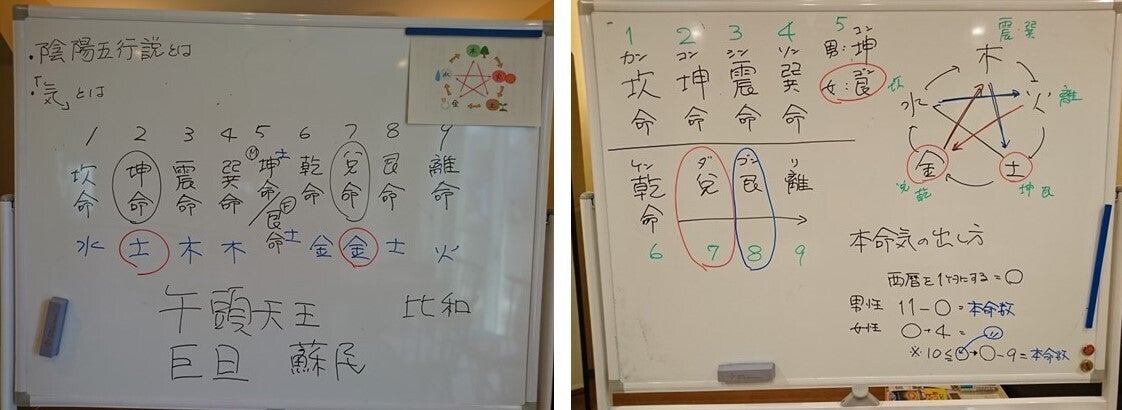 ・陰陽五行説とは
・「気」とは
木
火
土
金
水
1 2 3 4 5 6 7 8 9
坎命 坤命 震命 巽命 M坤命/F艮命 乾命 兌命 艮命 離命
水 土 木 木 土 土 金 金 土 火
午頭天王 比和
巨旦 蘇民
1 2 3 4 5
カン コン シン ソン コン
坎命 坤命 震命 巽命 男:坤
ゴン
女:艮
ケン ダ ゴン リ
乾命 兌 艮 離
6 7 8 9
震・巽
木
坎 水 火 離
金 土
兌 乾 坤 艮
本命気の出し方
西暦を1ケタにする=○
男性 11-○=本命数
女性 ○+4=
※10≦○→○-9=本命数